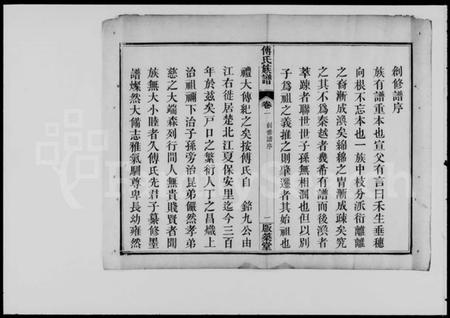 創修譜序
族有譜重本也宣父有言曰禾生垂穗
向根不忘本也一族中枝分派衍離離
之裔漸成渙矣綿綿之冑漸成疎矣究
之其不為秦越者幾希有譜而後渙者
萃疎者聯世世子孫無相瀆也但以別
子為祖之義推之則肇遷者其始祖也
傅氏族譜
卷一
創修譜序
一
版築堂
禮大傳紀之矣按傅氏自 銘九公由
江右徙居楚北江夏保安里迄今三百
年於茲矣戶口之繁衍人丁之昌熾上
治祖禰下治子孫旁治昆弟儼然孝弟
慈之大端森列行間人無貴賤賢者聞
族無大小睦者久傅氏先君子纂修墨
譜燦然大備志雅氣馴尊卑長幼雍然